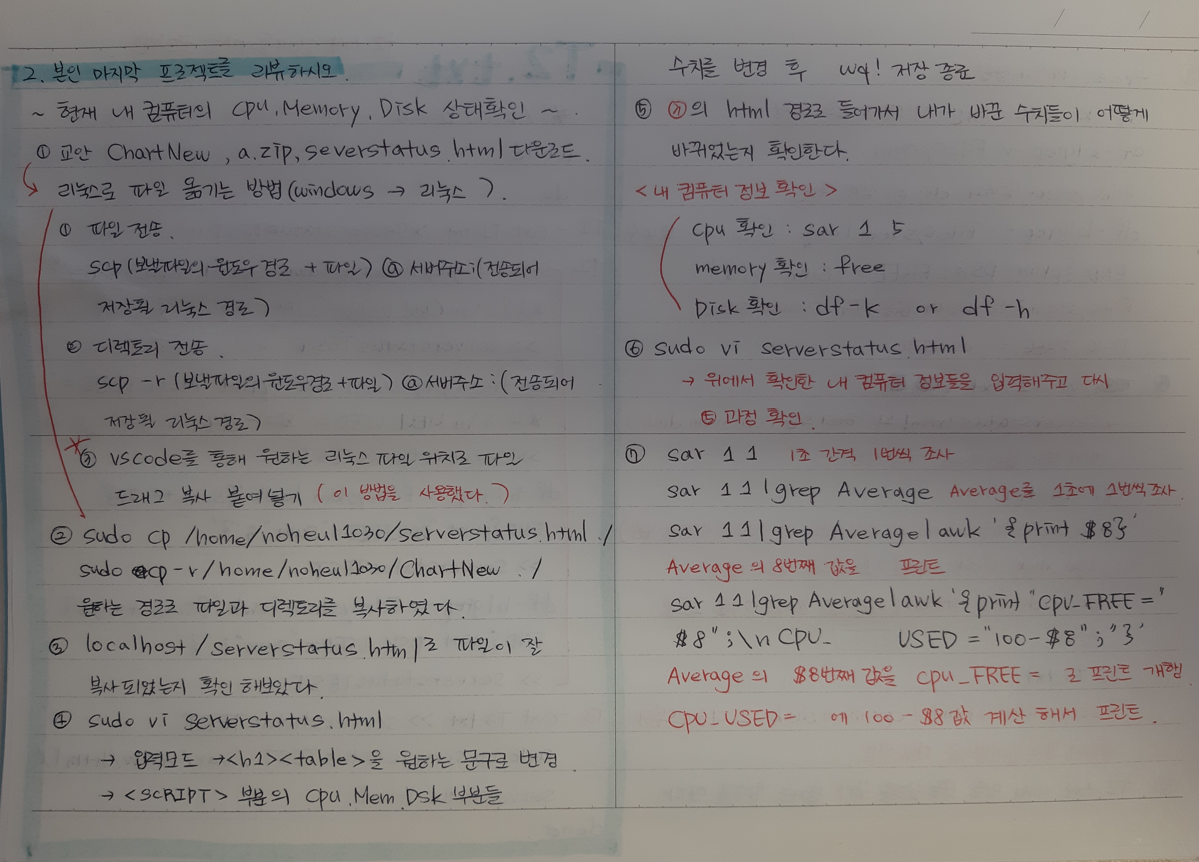 2. 본인 마지막 프로젝트를 리뷰하시오.
~ 현재 내 컴퓨터의 CPU, Memory, Disk 상태확인 ~.
① 교안 ChartNew, a.zip, severstatus.html 다운로드.
리눅스로 파일 옮기는 방법(windows → 리눅스).
① 파일 전송.
scp(보낼파일의 윈도우 경로 + 파일) @ 서버주소:(전송되어
저장될 리눅스 경로)
② 디렉토리 전송.
scp -r (보낼파일의 윈도우경로+파일) @서버주소:(전송되어
저장될 리눅스경로)
③ vscode를 통해 원하는 리눅스 파일 위치로 파일
드래그 복사 붙여넣기 (이 방법을 사용했다.)
② sudo cp /home/noheul1030/serverstatus.html ./
sudo cp -r /home/noheul1030/ChartNew ./
원하는 경로로 파일과 디렉토리를 복사하였다.
③ localhost/serverstatus.html로 파일이 잘
복사되었는지 확인 해보았다.
④ sudo vi serverstatus.html
→ 입력모드 → <h1><table>을 원하는 문구로 변경
→ <SCRIPT> 부분의 Cpu.Mem.Dsk 부분들
수치를 변경 후 wq! 저장 종료
⑤ ③의 html 경로로 들어가서 내가 바꾼 수치들이 어떻게
바뀌었는지 확인한다.
<내 컴퓨터 정보 확인>
cpu 확인 : sar 1 5
memory 확인 : free
Disk 확인 : df-k or df-h
⑥ sudo vi serverstatus.html
→ 위에서 확인한 내 컴퓨터 정보들을 입력해주고 다시
⑤ 과정 확인.
⑦ sar 1 1 1초 간격 1번씩 조사
sar 1 1 | grep Average Average를 1초에 1번씩 조사.
sar 1 1 | grep Average | awk '{print $8}'
Average의 8번째 값을 프린트
sar 1 1 | grep Average | awk '{print "CPU_FREE="
$8";\n CPU_ USED="100-$8";"}'
Average의 $8번째 값을 CPU_FREE= 로 프린트 개행
CPU_USED= 에 100-$8값 계산 해서 프린트.